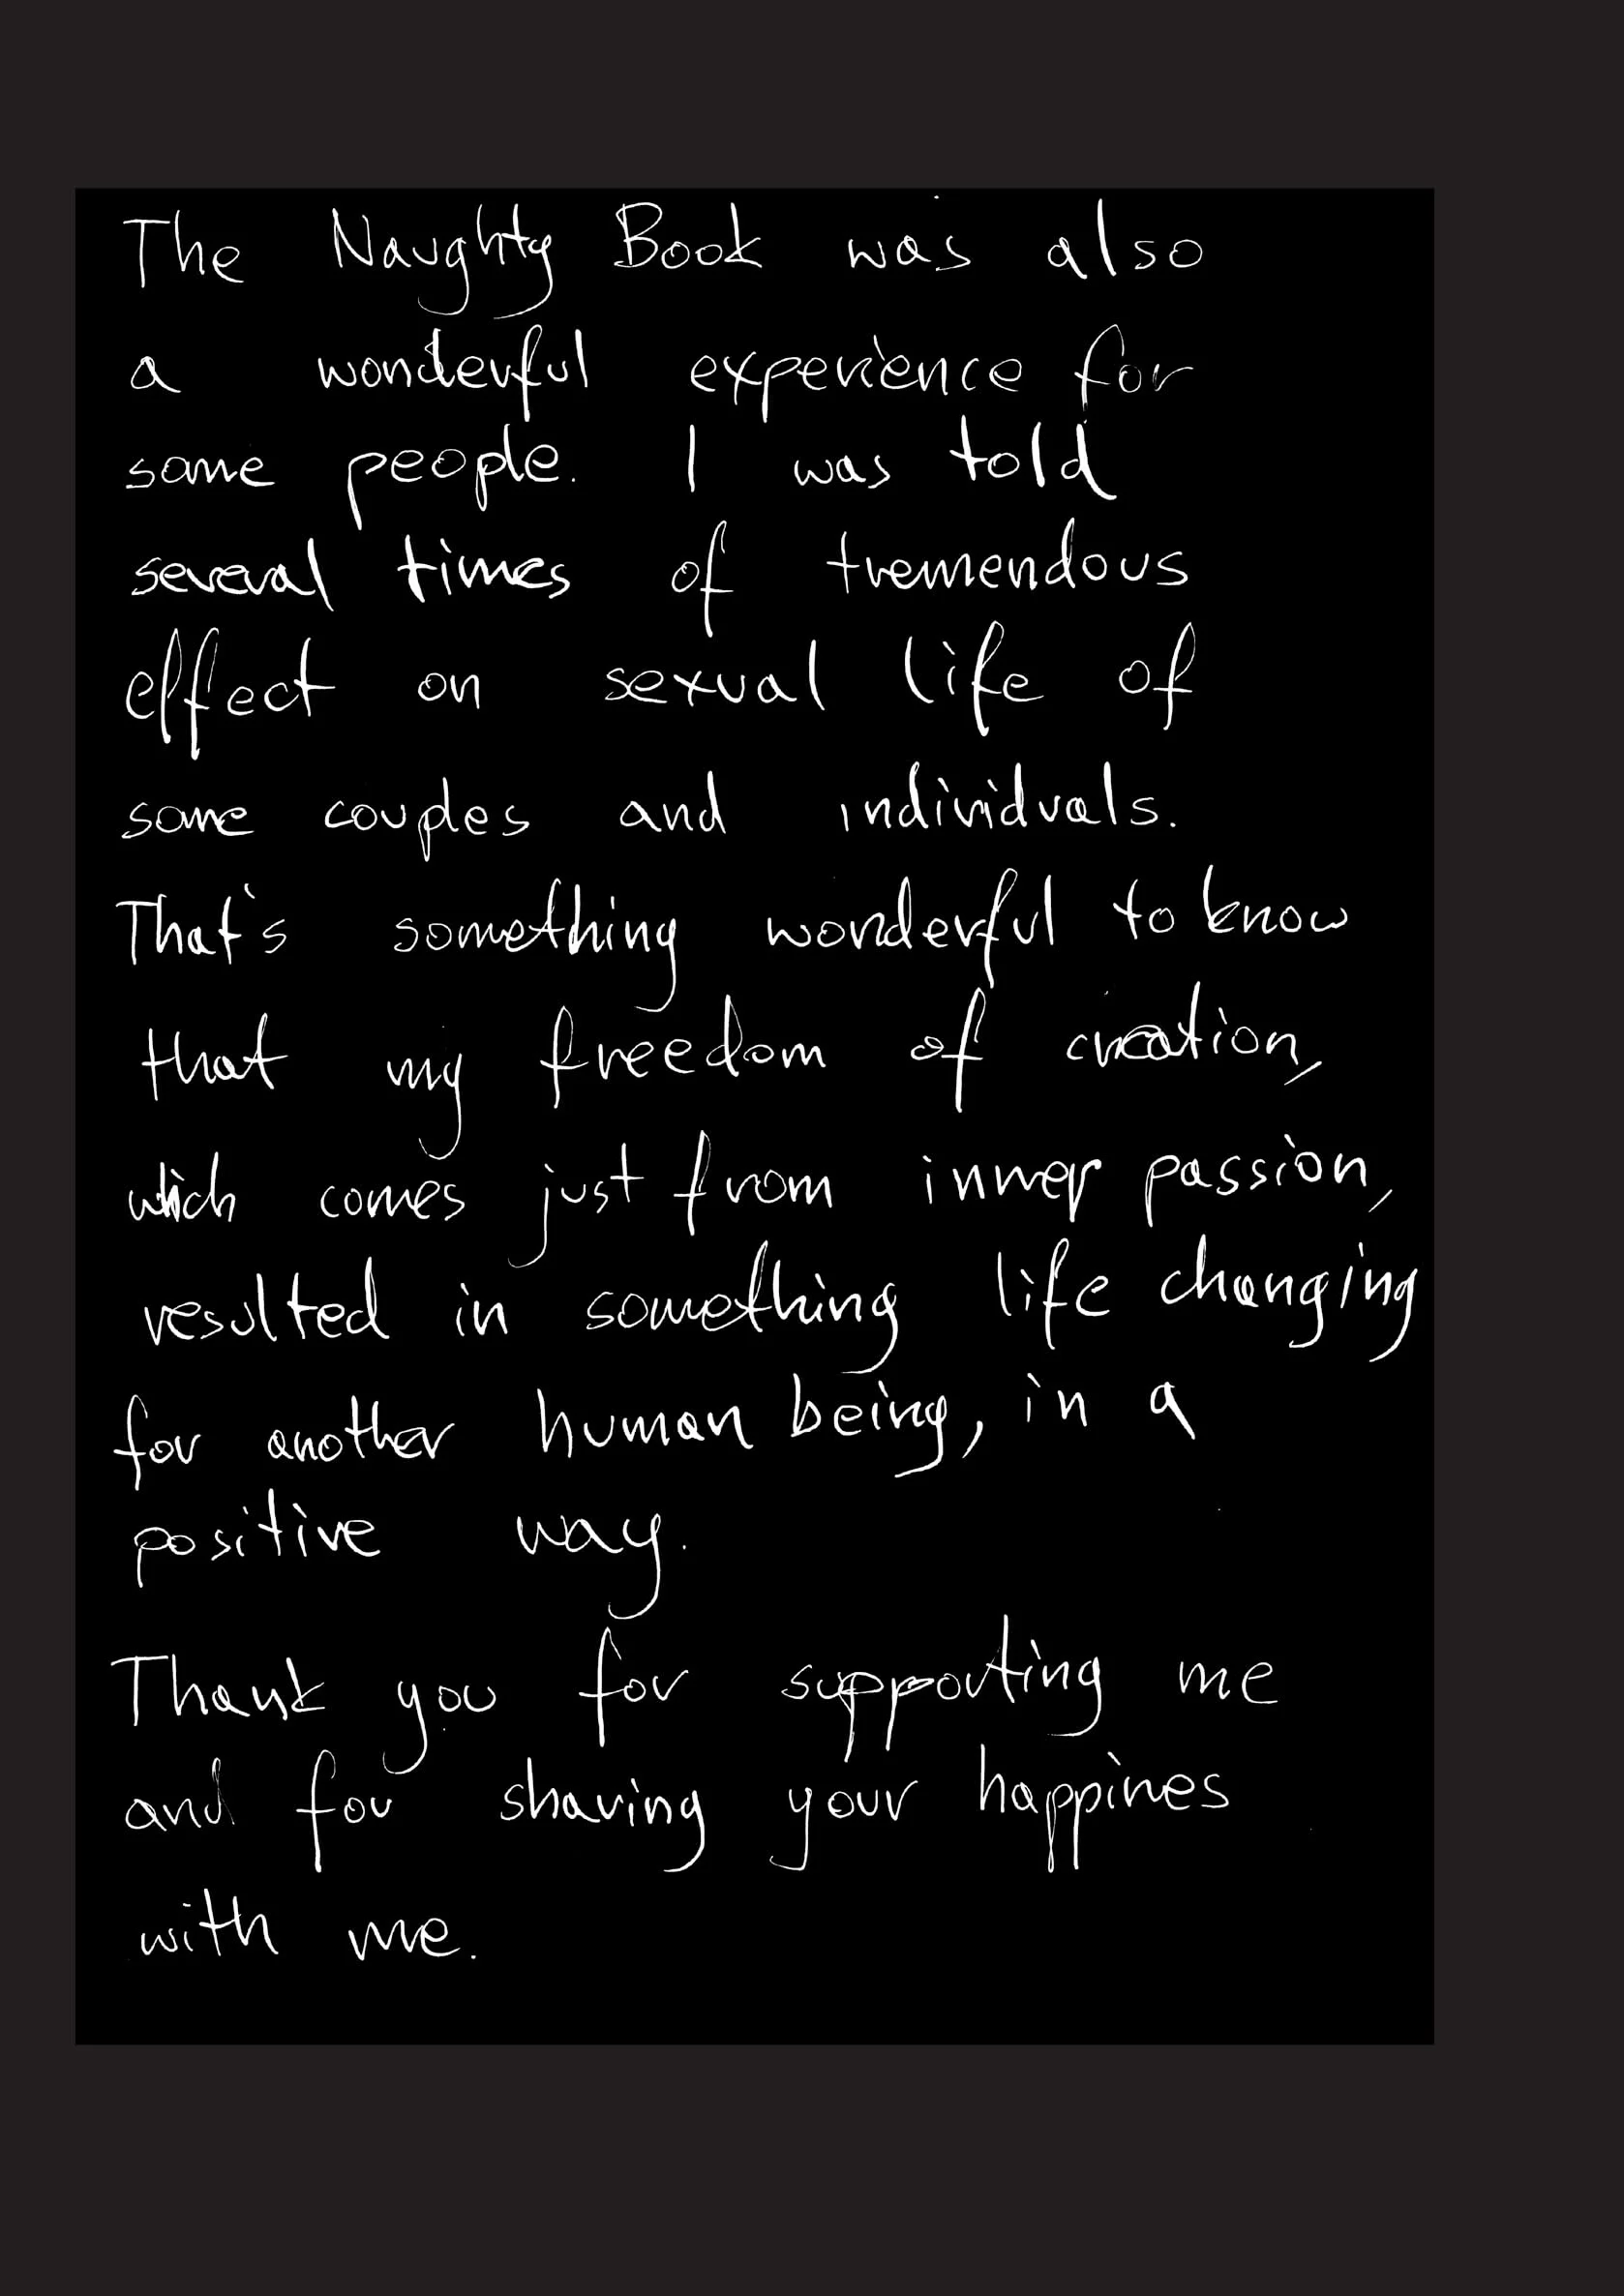 The Naughty Book was also
a wonderful experience for
some people. I was told
several times of tremendous
effect on sexual life of
some couples and individuals.
That's something wonderful to know
that my freedom of creation,
which comes just from inner passion,
resulted in something life changing
for another human being, in a
positive way.
Thank you for supporting me
and for sharing your happines
with me.